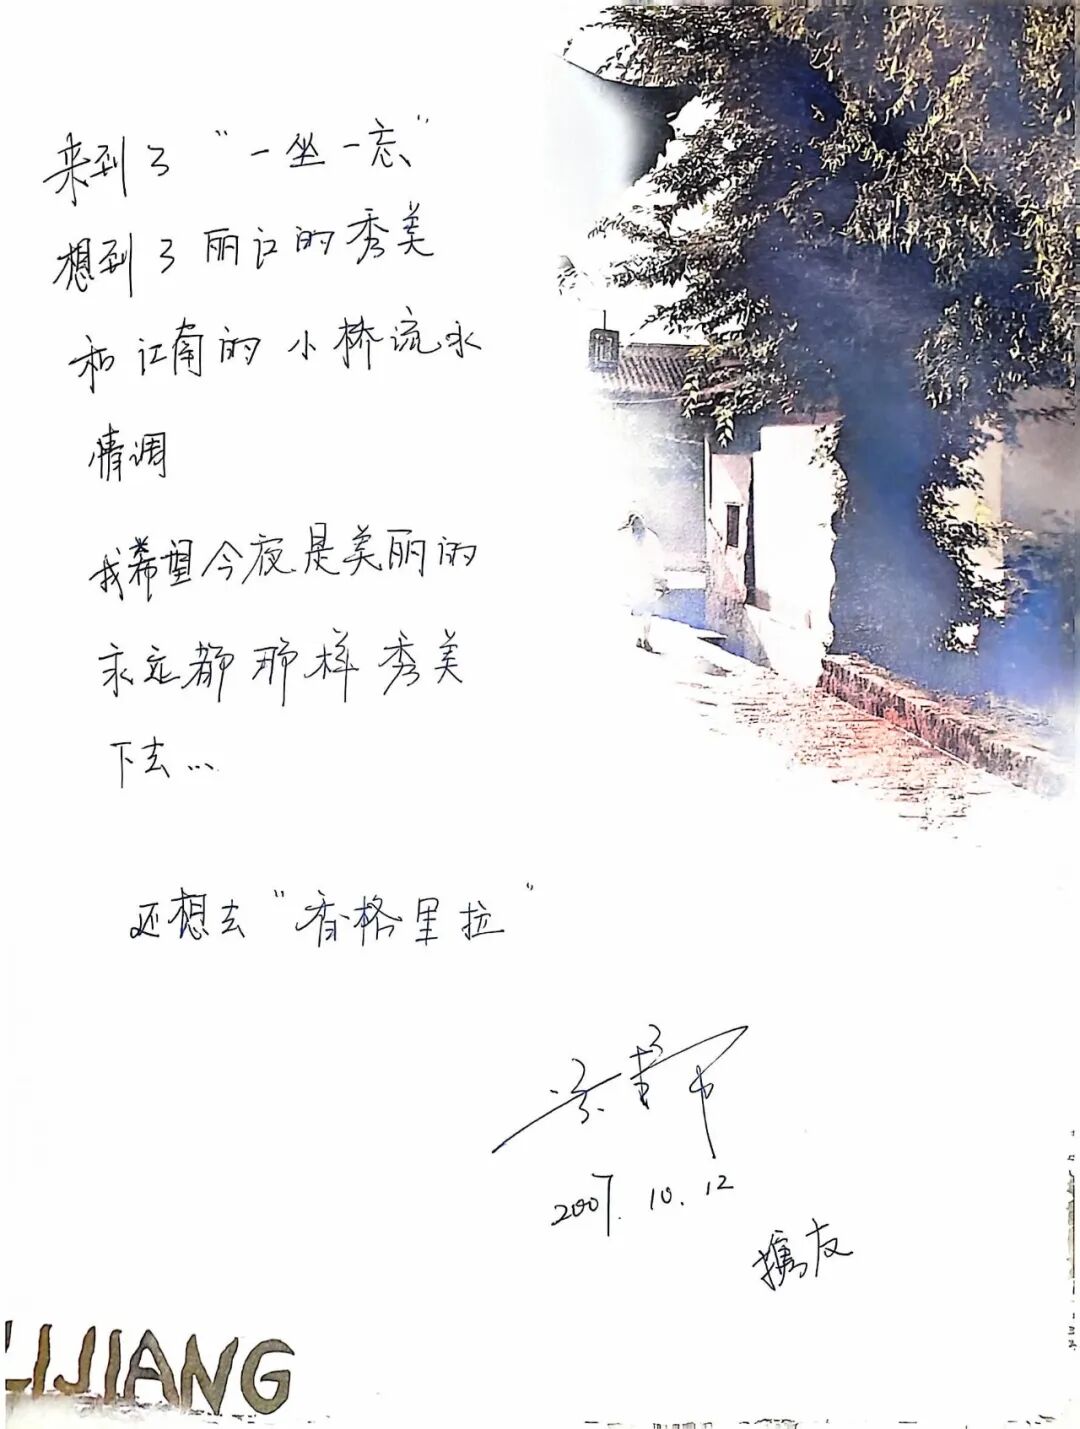 来到了“一坐一忘”
想到了丽江的秀美
和江南的小桥流水
情调
我希望今夜是美丽的
永远都那样秀美
下去...
还想去“香格里拉”
2007.10.12
携友
LIJIANG